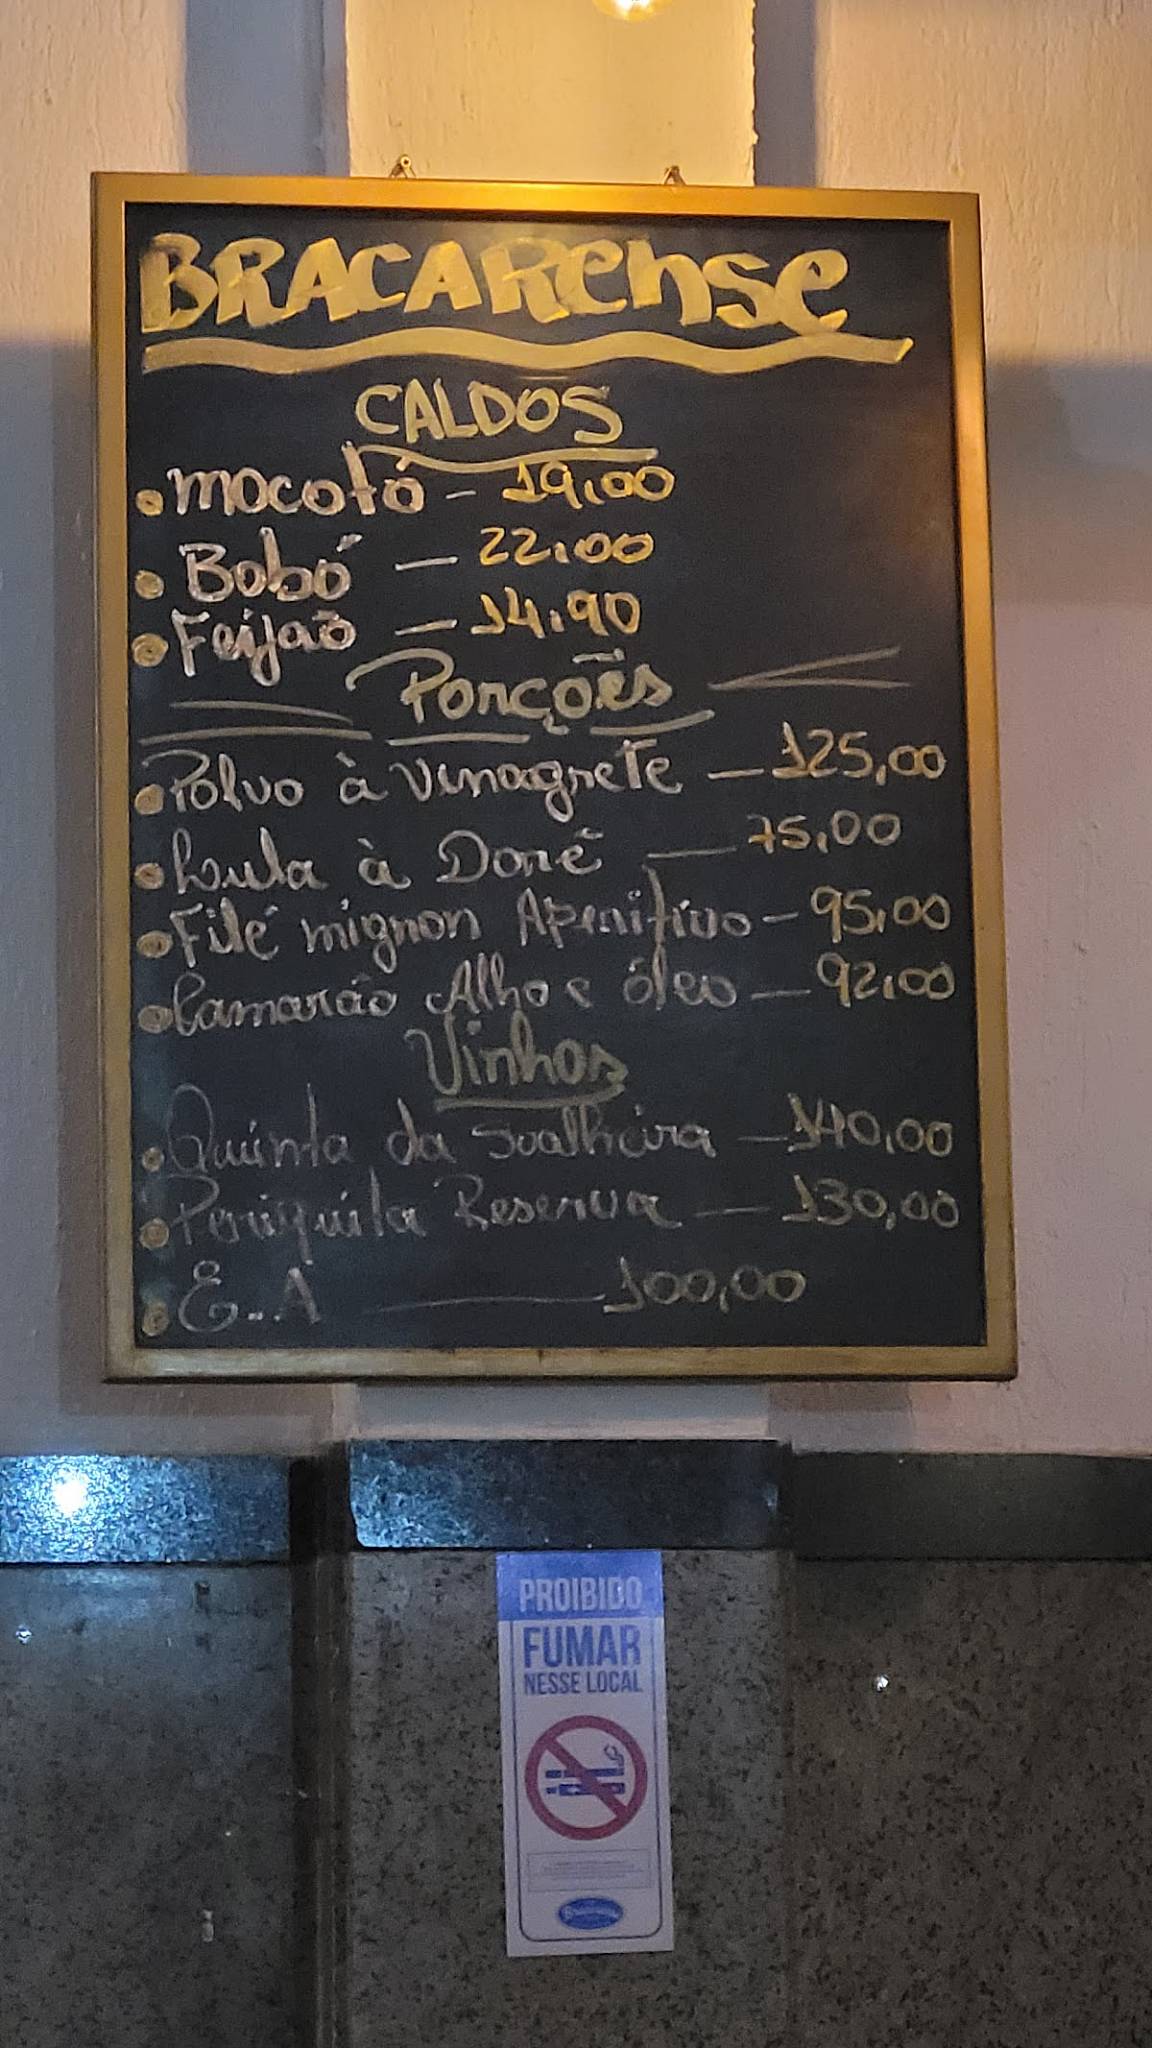 BRACARENSE
CALDOS
• mocotó - 19,00
• Bobó — 22,00
• Feijão — 14,90
Porções
• Polvo à vinagrete — 125,00
• Lula à Dorê — 75,00
• Filé mignon Aperitivo - 95,00
• Camarão Alho e óleo — 92,00
Vinhos
• Quinta da Soalheira — 140,00
• Periquita Reserva — 130,00
• E.A — 100,00
PROIBIDO
FUMAR
NESSE LOCAL